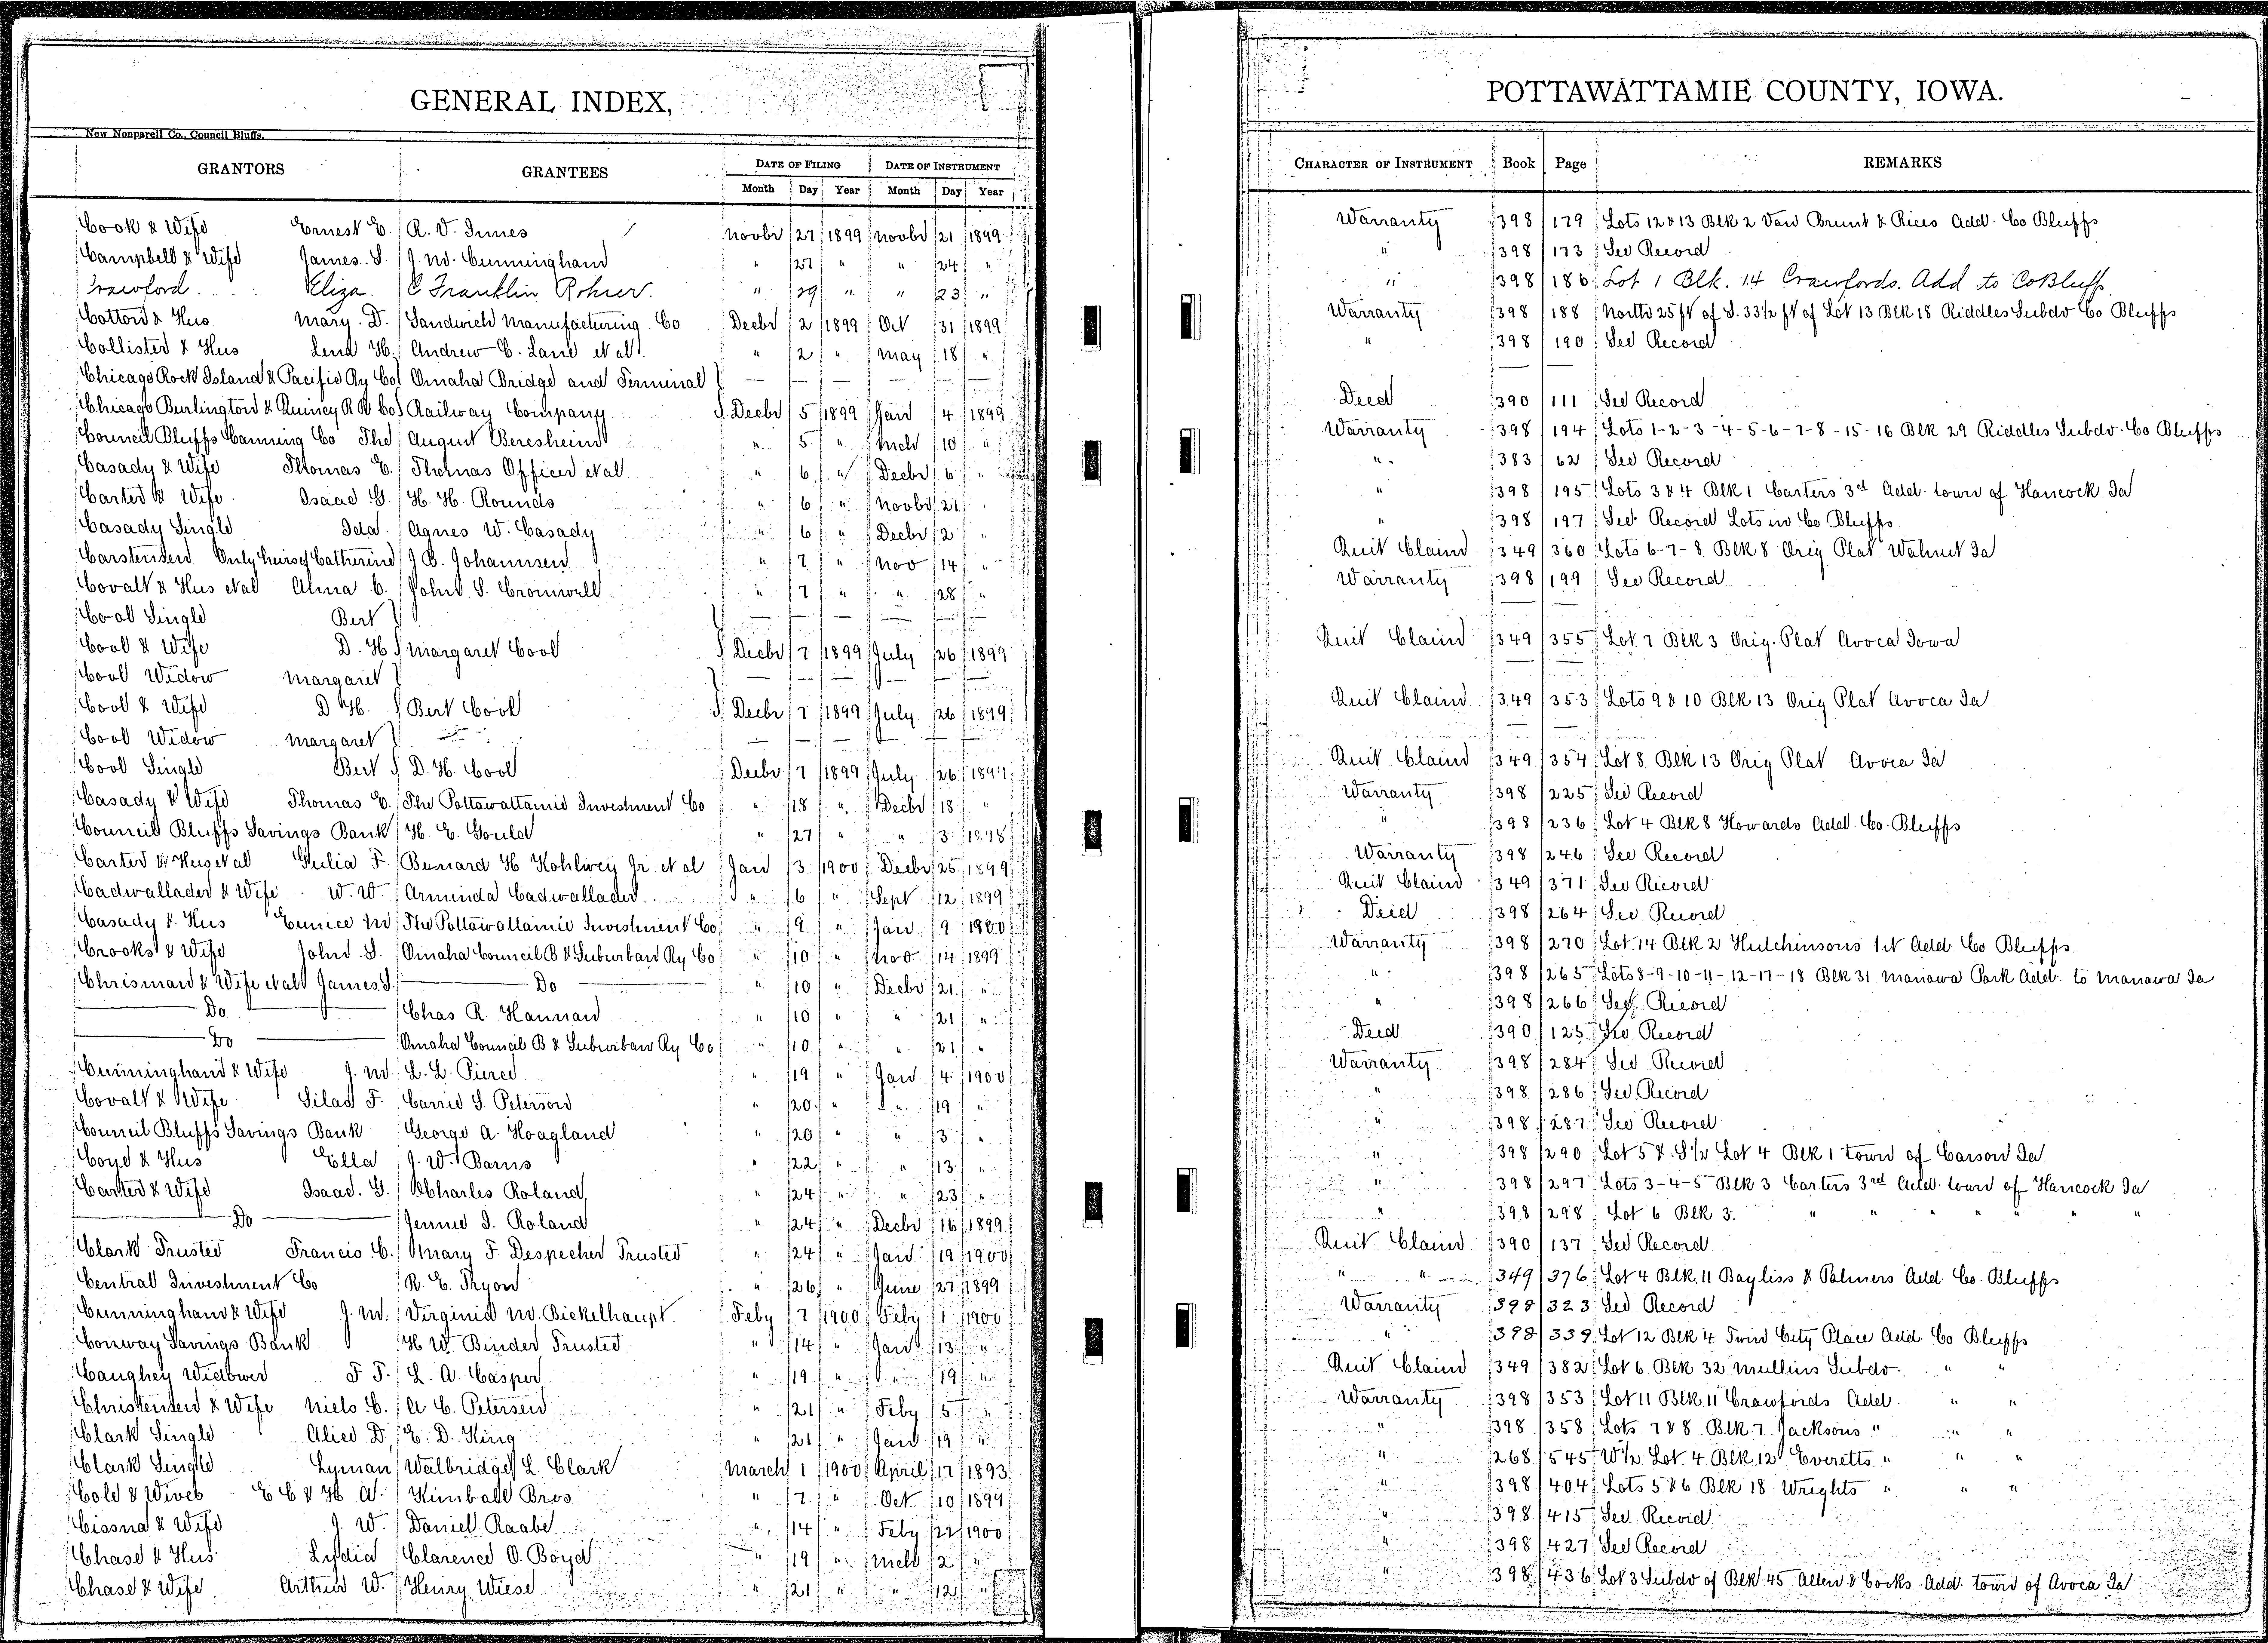 GENERAL INDEX,
New Nonpareil Co., Council Bluffs.
GRANTORS GRANTEES DATE OF FILING DATE OF INSTRUMENT
Month Day Year Month Day Year
Cook & Wife Ernest E. R. V. Innes Novbr 27 1899 Novbr 21 1899
Campbell & Wife James. S. J. M. Cunningham " 27 " " 24 "
Crawford. Eliza. C Franklin Rohrer. " 29 " " 23 "
Cotton & Hus Mary. D. Sandwich Manufacturing Co Decbr 2 1899 Oct 31 1899
Collister & Hus Lena H. Andrew C. Lane et al " 2 " May 18 "
Chicago Rock Island & Pacific Ry Co Omaha Bridge and Terminal
Chicago Burlington & Quincy R R Co Railway Company Decbr 5 1899 Jan 4 1899
Council Bluffs Canning Co The August Beresheim " 5 " Mch 10 "
Casady & Wife Thomas E. Thomas Officer et al " 6 " Decbr 6 "
Carter & Wife Isaac G. H. H. Rounds " 6 " Novbr 21 "
Casady Single Ida. Agnes W. Casady " 6 " Decbr 2 "
Carstensen Only heirs of Catherine J. B. Johannsen " 7 " Nov 14 "
Covalt & Hus et al Alma C. John S. Cromwell " 7 " " 28 "
Cool Single Bert
Cool & Wife D. H. Margaret Cool Decbr 7 1899 July 26 1899
Cool Widow Margaret
Cool & Wife D H. Bert Cool Decbr 7 1899 July 26 1899
Cool Widow Margaret
Cool Single Bert D. H. Cool Decbr 7 1899 July 26 1899
Casady & Wife Thomas E. The Pottawattamie Investment Co " 18 " Decbr 18 "
Council Bluffs Savings Bank H. E. Gould " 27 " " 3 1898
Carter & Hus et al Julia F. Benard H Kohlwey Jr. et al Jan 3 1900 Decbr 25 1899
Cadwallader & Wife W. W. Arminda Cadwallader " 6 " Sept 12 1899
Casady & Hus Eunice M The Pottawattamie Investment Co " 9 " Jan 9 1900
Crooks & Wife John. S. Omaha Council B & Suburban Ry Co " 10 " Nov 14 1899
Chrisman & Wife et al James S. Do " 10 " Decbr 21 "
Do Chas R. Hannan " 10 " " 21 "
Do Omaha Council B & Suburban Ry Co " 10 " " 21 "
Cunningham & Wife J. M. L. L. Pierce " 19 " Jan 4 1900
Covalt & Wife Silas F. Carrie S. Peterson " 20 " " 19 "
Council Bluffs Savings Bank George A. Hoagland " 20 " " 3 "
Coyd & Hus Ella J. W. Barns " 22 " " 13 "
Carter & Wife Isaac. G. Charles Roland " 24 " " 23 "
Do Jennie I. Roland " 24 " Decbr 16 1899
Clark Trustee Francis C. Mary F. Despecher Trustee " 24 " Jan 19 1900
Central Investment Co R. E. Pryor " 26 " June 27 1899
Cunningham & Wife J. M. Virginia M. Bickelhaupt. Feby 7 1900 Feby 1 1900
Conway Savings Bank H W Binder Trustee " 14 " Jan 13 "
Caughey Widower F T. L. A. Casper " 19 " " 19 "
Christensen & Wife Niels C. A C. Petersen " 21 " Feby 5 "
Clark Single Alice D. E. D. King " 21 " Jan 19 "
Clark Single Lyman Walbridge L. Clark March 1 1900 April 17 1893
Cole & Wives E C & H A. Kimball Bros " 7 " Oct 10 1899
Cissna & Wife J W. Daniel Raabe " 14 " Feby 22 1900
Chase & Hus Lydia Clarence O. Boyd " 19 " Mch 2 "
Chase & Wife Arthur W. Henry Wiese " 21 " " 12 "
POTTAWATTAMIE COUNTY, IOWA.
CHARACTER OF INSTRUMENT Book Page REMARKS
Warranty 398 179 Lots 12 & 13 Blk 2 Van Brunt & Rices Add. Co Bluffs
" 398 173 See Record
" 398 186 Lot 1 Blk. 14 Crawfords. Add to Co Bluff
Warranty 398 188 North 25 ft of S. 33 1/2 ft of Lot 13 Blk 18 Riddles Subdv Co Bluffs
" 398 190 See Record
Deed 390 111 See Record
Warranty 398 194 Lots 1-2-3-4-5-6-7-8-15-16 Blk 29 Riddles Subdv. Co Bluffs
" 383 62 See Record
" 398 195 Lots 3 & 4 Blk 1 Carters 3d Add. town of Hancock Ia
" 398 197 See Record Lots in Co Bluffs
Quit Claim 349 360 Lots 6-7-8 Blk 8 Orig Plat Walnut Ia
Warranty 398 199 See Record
Quit Claim 349 355 Lot 7 Blk 3 Orig. Plat Avoca Iowa
Quit Claim 349 353 Lots 9 & 10 Blk 13 Orig Plat Avoca Ia
Quit Claim 349 354 Lot 8 Blk 13 Orig Plat Avoca Ia
Warranty 398 225 See Record
" 398 236 Lot 4 Blk 8 Howards Add. Co. Bluffs
Warranty 398 246 See Record
Quit Claim 349 371 See Record
Deed 398 264 See Record
Warranty 398 270 Lot 14 Blk 2 Hutchinsons 1st Add Co Bluffs
" 398 265 Lots 8-9-10-11-12-17-18 Blk 31 Manawa Park Add. to Manawa Ia
" 398 266 See Record
Deed 390 125 See Record
Warranty 398 284 See Record
" 398 286 See Record
" 398 287 See Record
" 398 290 Lot 5 & S 1/2 Lot 4 Blk 1 town of Carson Ia
" 398 297 Lots 3-4-5 Blk 3 Carters 3rd Add. town of Hancock Ia
" 398 298 Lot 6 Blk 3 " " " "
Quit Claim 390 137 See Record
" " 349 376 Lot 4 Blk 11 Bayliss & Palmers Add. Co. Bluffs
Warranty 398 323 See Record
" 398 339 Lot 12 Blk 4 Twin City Place Add Co Bluffs
Quit Claim 349 382 Lot 6 Blk 32 Mullins Subdv. " "
Warranty 398 353 Lot 11 Blk 11 Crawfords Add. " "
" 398 358 Lots 7 & 8 Blk 7 Jacksons " " "
" 268 545 W 1/2 Lot 4 Blk 12 Everetts " " "
" 398 404 Lots 5 & 6 Blk 18 Wrights " " "
" 398 415 See Record
" 398 427 See Record
" 398 436 Lot 3 Subdv of Blk 45 Allen & Cooks Add. town of Avoca Ia